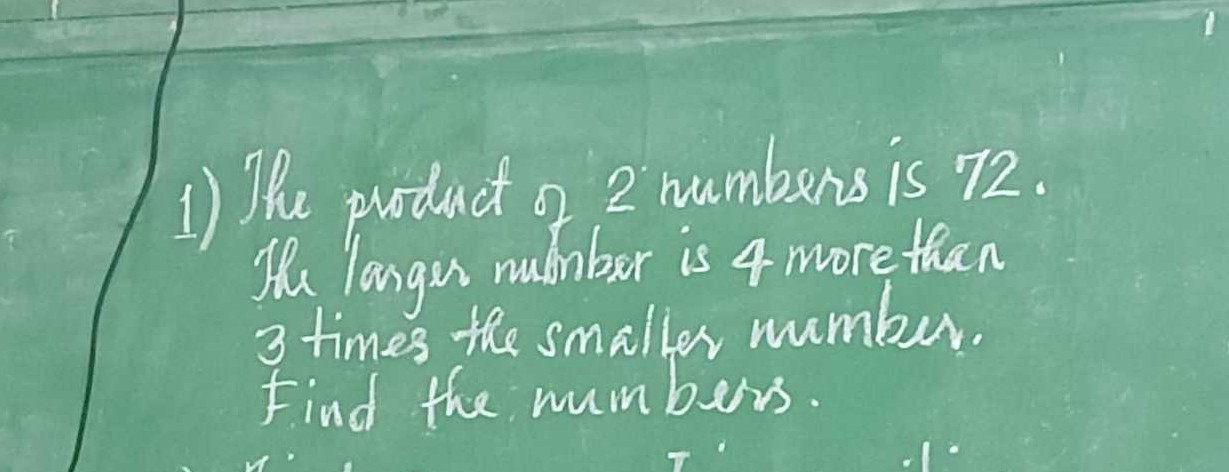 1) The product of 2 numbers is 72.
The larger number is 4 more than
3 times the smaller number.
Find the numbers.